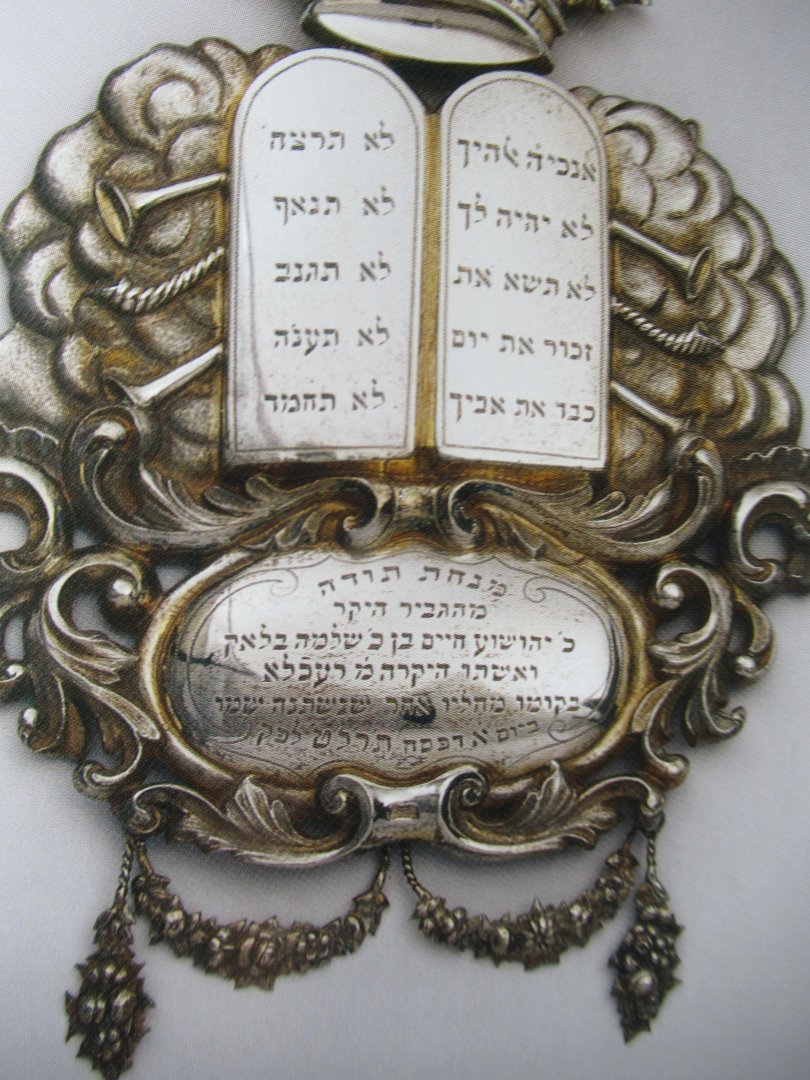 אנכי ה אהיך
לא יהיה לך
לא תשא את
זכור את יום
כבד את אביך
לא תרצח
לא תנאף
לא תגנב
לא תענה
לא תחמד
מנחת תודה
מהגביר היקר
כ׳ יהושוע חיים בן כ׳ שלמה בלאק
ואשתו היקרה מ׳ רעכלא
בקומו מחליו אחר שנשתנה שמו
ביום א דפסח תרלט לפק